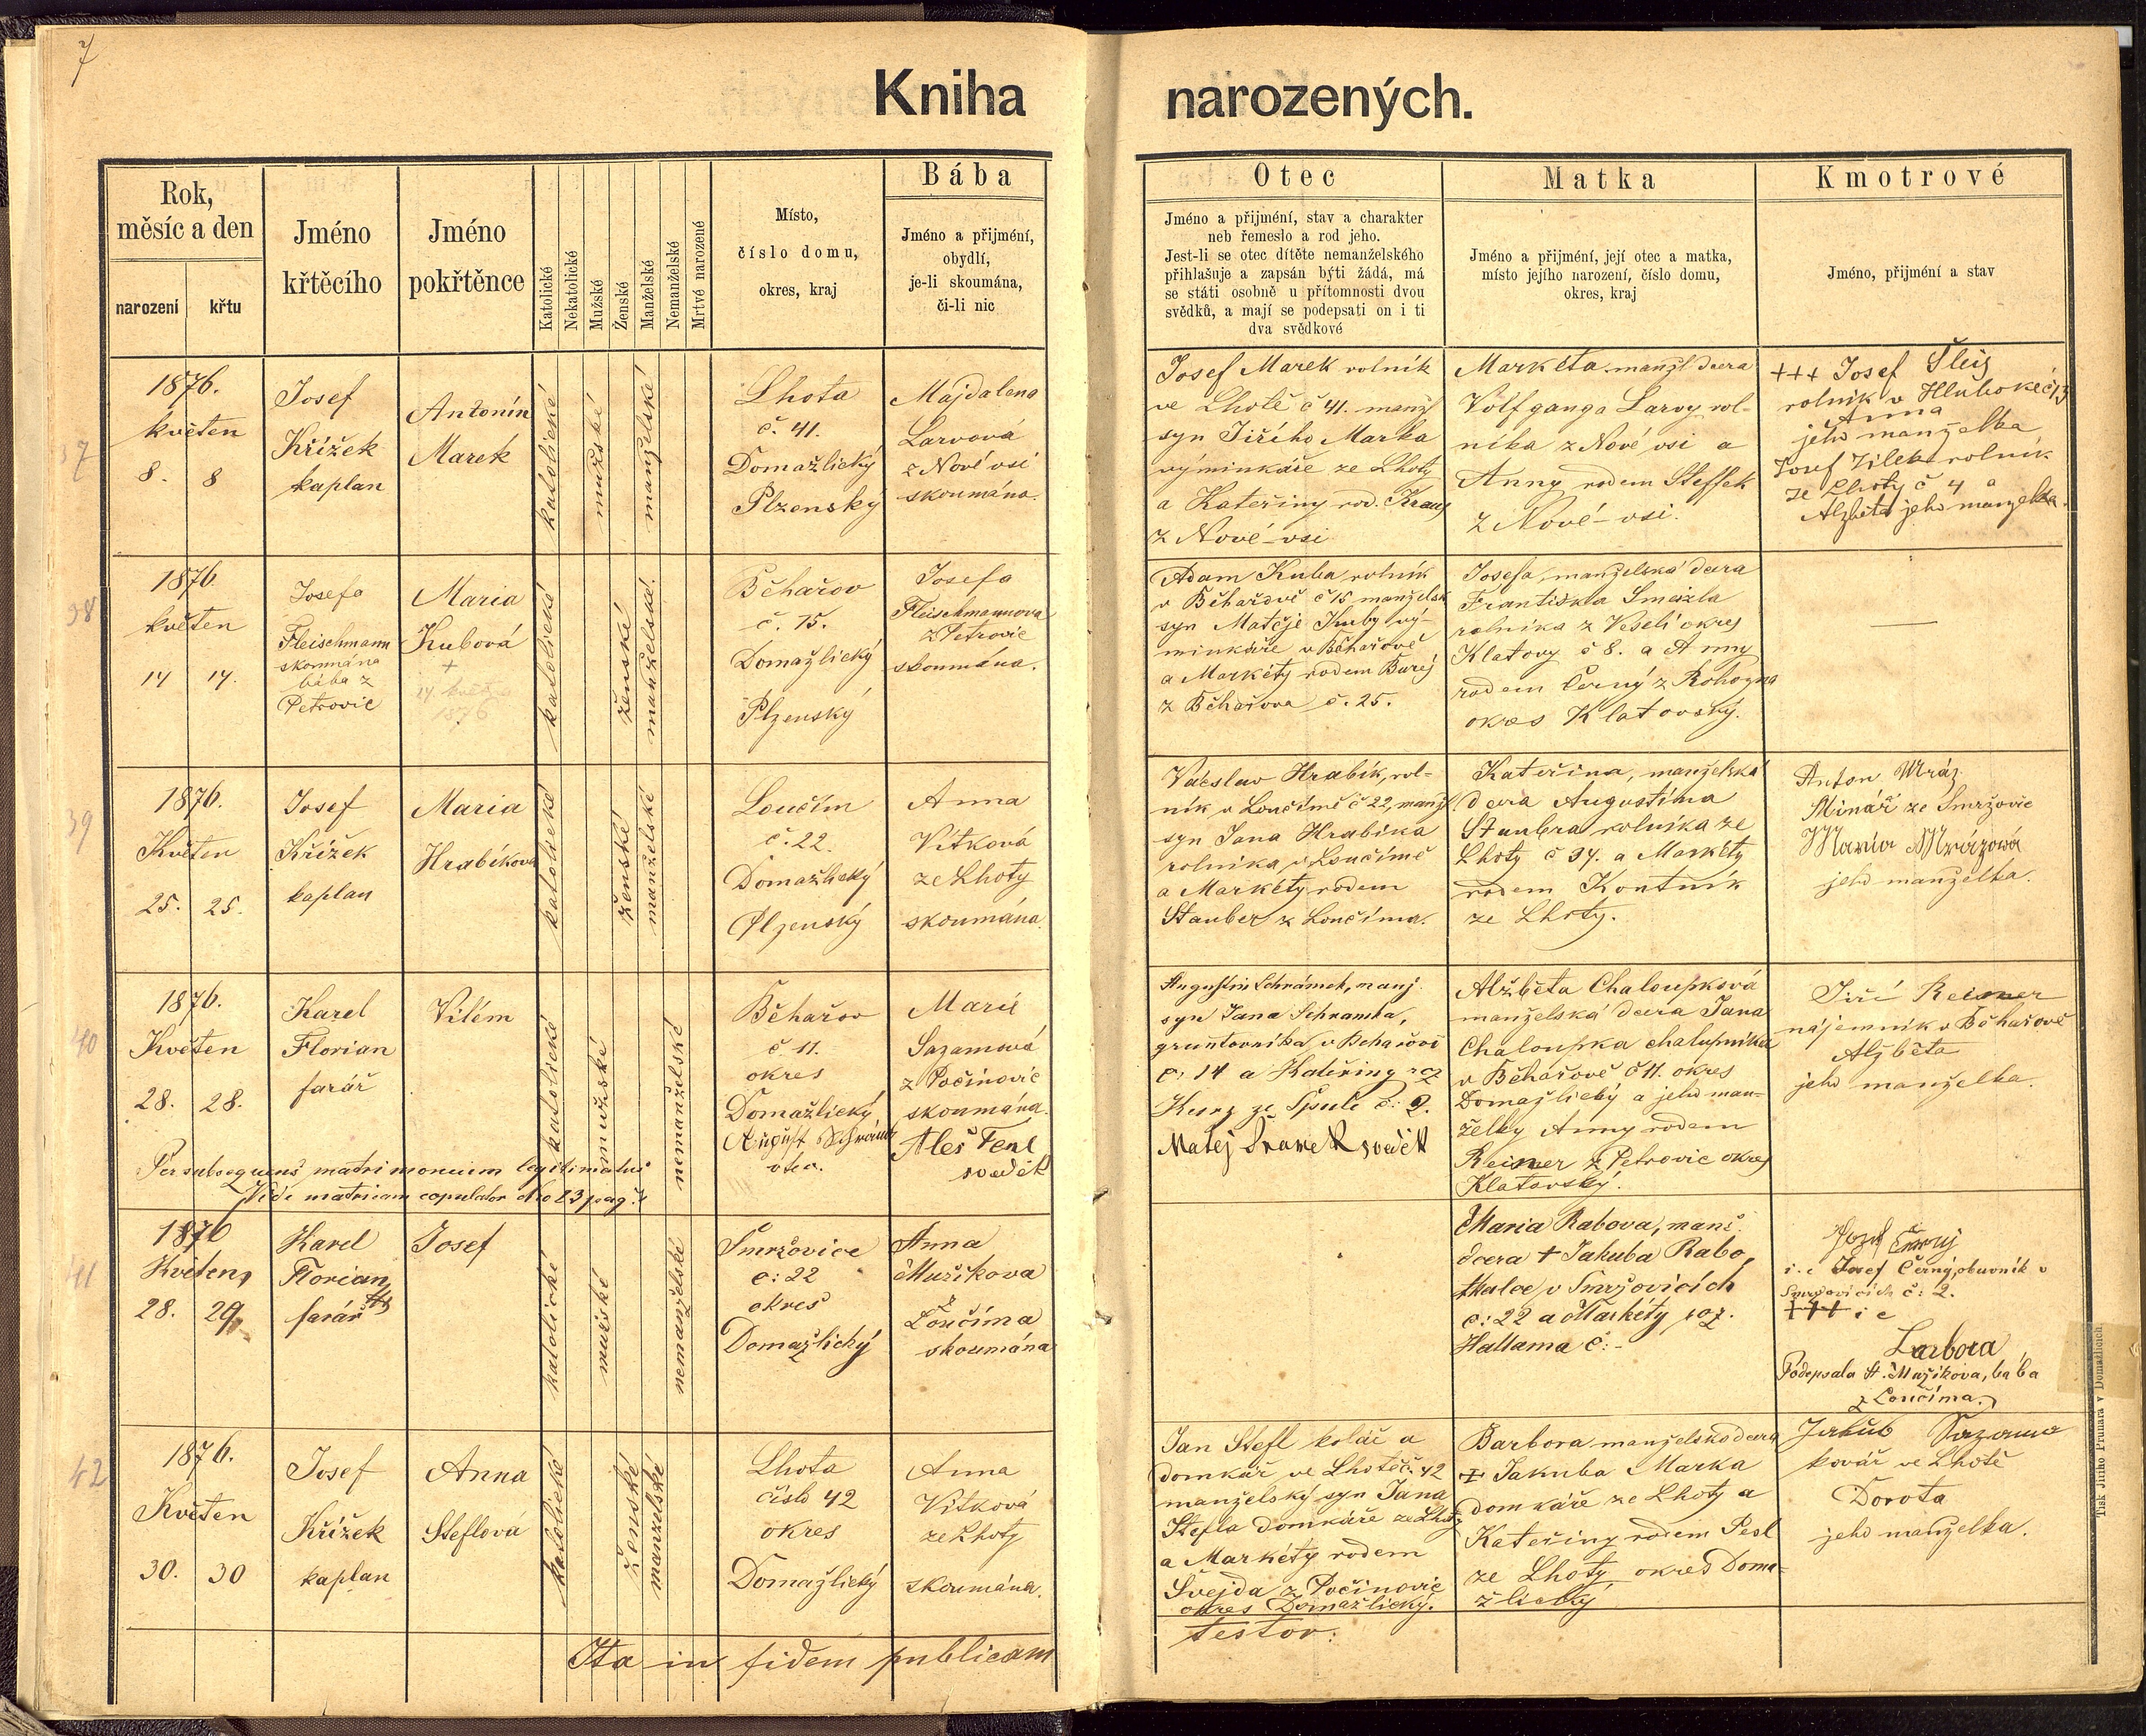 7
Kniha narozených.
Rok,
měsíc a den
narození
křtu
Jméno
křtěcího
Jméno
pokřtěnce
Katolické
Nekatolické
Mužské
Ženské
Manželské
Nemanželské
Mrtvé narozené
Místo,
číslo domu,
okres, kraj
Bába
Jméno a přijmění,
obydlí,
je-li skoumána,
či-li nic
Otec
Jméno a přijmění, stav a charakter
neb řemeslo a rod jeho.
Jest-li se otec dítěte nemanželského
přihlašuje a zapsán býti žádá, má
se státi osobně u přítomnosti dvou
svědků, a mají se podepsati on i ti
dva svědkové
Matka
Jméno a přijmění, její otec a matka,
místo jejího narození, číslo domu,
okres, kraj
Kmotrové
Jméno, přijmění a stav
37
1876.
květen
8. 8
Josef
Křížek
kaplan
Antonín
Marek
katolické
mužské
manželské
Lhota
č. 41.
Domažlický
Plzenský
Majdalena
Larvová
z Nové vsi
skoumána.
Josef Marek rolník
ve Lhotě č 41. manž
syn Jiřího Marka
výminkáře ze Lhoty
a Kateřiny rod. Kraus
z Nové-vsi
Markéta manžl dcera
Volfganga Larvy rol-
níka z Nové vsi a
Anny rodem Steffek
z Nové-vsi.
+++ Josef Šleis
rolník v Hluboké č 13
Anna
jeho manželka
Josef Jílek rolník
ze Lhoty č 4 a
Alžběta jeho manželka.
38
1876.
květen
14 14.
Josefa
Fleischmann
skoumána
bába z
Petrovic
Maria
Kubová
+
14 května
1876
katolické
ženské
manželské.
Běhařov
č. 15.
Domažlický
Plzenský
Josefa
Fleischmannova
z Petrovic
skoumána.
Adam Kuba, rolník
v Běhařově č 15 manželsk
syn Matěje Kuby vý-
minkáře v Běhařově
a Markéty rodem Bureš
z Běhařova č. 25.
Josefa, manželská dcera
Františka Smazla
rolníka z Veselí okres
Klatovy č 8. a Anny
rodem Černý z Rohozna
okres Klatovský.
39
1876.
Květen
25. 25.
Josef
Křížek
kaplan
Maria
Hrabíková
katolické
ženské
manželské
Loučim
č. 22.
Domažlický
Plzenský
Anna
Vítková
ze Lhoty
skoumána.
Vácslav Hrabík, rol-
ník v Loučímě č 22, manž
syn Jana Hrabíka
rolníka, v Loučímě
a Markéty rodem
Stauber z Loučíma.
Kateřina, manželská
dcera Augustina
Staubra rolníka ze
Lhoty č 34. a Markéty
rodem Kontník
ze Lhoty.
Anton Mráz
Minář ze Smržovic
Maria Mrázowá
jeho manželka.
40
1876.
Květen
28. 28.
Karel
Florian
farář
Vilém
katolické
mužské
nemanželské
Běhařov
č. 11.
okres
Domažlický
August Schrámek
otec.
Marie
Sazamová
z Počinovic
skoumána.
Aleš Fenl
svědek
Per subsequens matrimonium legitimatus
Vide matricam copulator
Augustin Schrámek, manž.
syn Jana Schramka,
gruntovníka v Behařově
č: 14 a Kateřiny roz
Kunz ze Spule č: 2.
Matěj Šrámek svědek
Alžběta Chaloupková
manželská dcera Jana
Chaloupka chalupníka
v Běhařově č 11. okres
Domažlický a jeho man-
želky Anny rodem
Reisner z Petrovic okres
Klatovský.
Jiří Reisner
nájemník v Běhařově
Alžběta
jeho manželka.
41
1876
Květen,
28. 29.
Karel
Florian
farář
Josef
katolické
mužské
nemanželské
Smržovice
č: 22
okres
Domažlický
Anna
Mužíkova
z
Loučíma
skoumána
Maria Rabova, manž.
dcera + Jakuba Rabo,
tkalce, v Smržovicích
č: 22 a Markéty roz.
Hallama č: -
Jozef Černej
i. e Josef Černý, obuvník v
Smržovicích č: 2.
+++ i e
Barbora
Podepsala A. Mužíkova, bába
z Loučíma.
42
1876.
Květen
30. 30
Josef
Křížek
kaplan
Anna
Steflová
katolické
ženské
manželské
Lhota
číslo 42
okres
Domažlický
Anna
Vítková
ze Lhoty
skoumána.
Jan Stefl kolář a
domkář ve Lhotě č. 42
manželský syn Jana
Stefla domkáře ze Lhoty
a Markéty rodem
Švejda z Počinovic
okres Domažlický.
Barbora manželská dcera
+ Jakuba Marka
domkáře ze Lhoty a
Kateřiny rodem Pesl
ze Lhoty okres Doma-
žlický
Jakub Sazama
kovář ve Lhotě
Dorota
jeho manželka.
Ita in fidem publicam
testor.
Tisk Jiřího Prunara v Domažlicích.